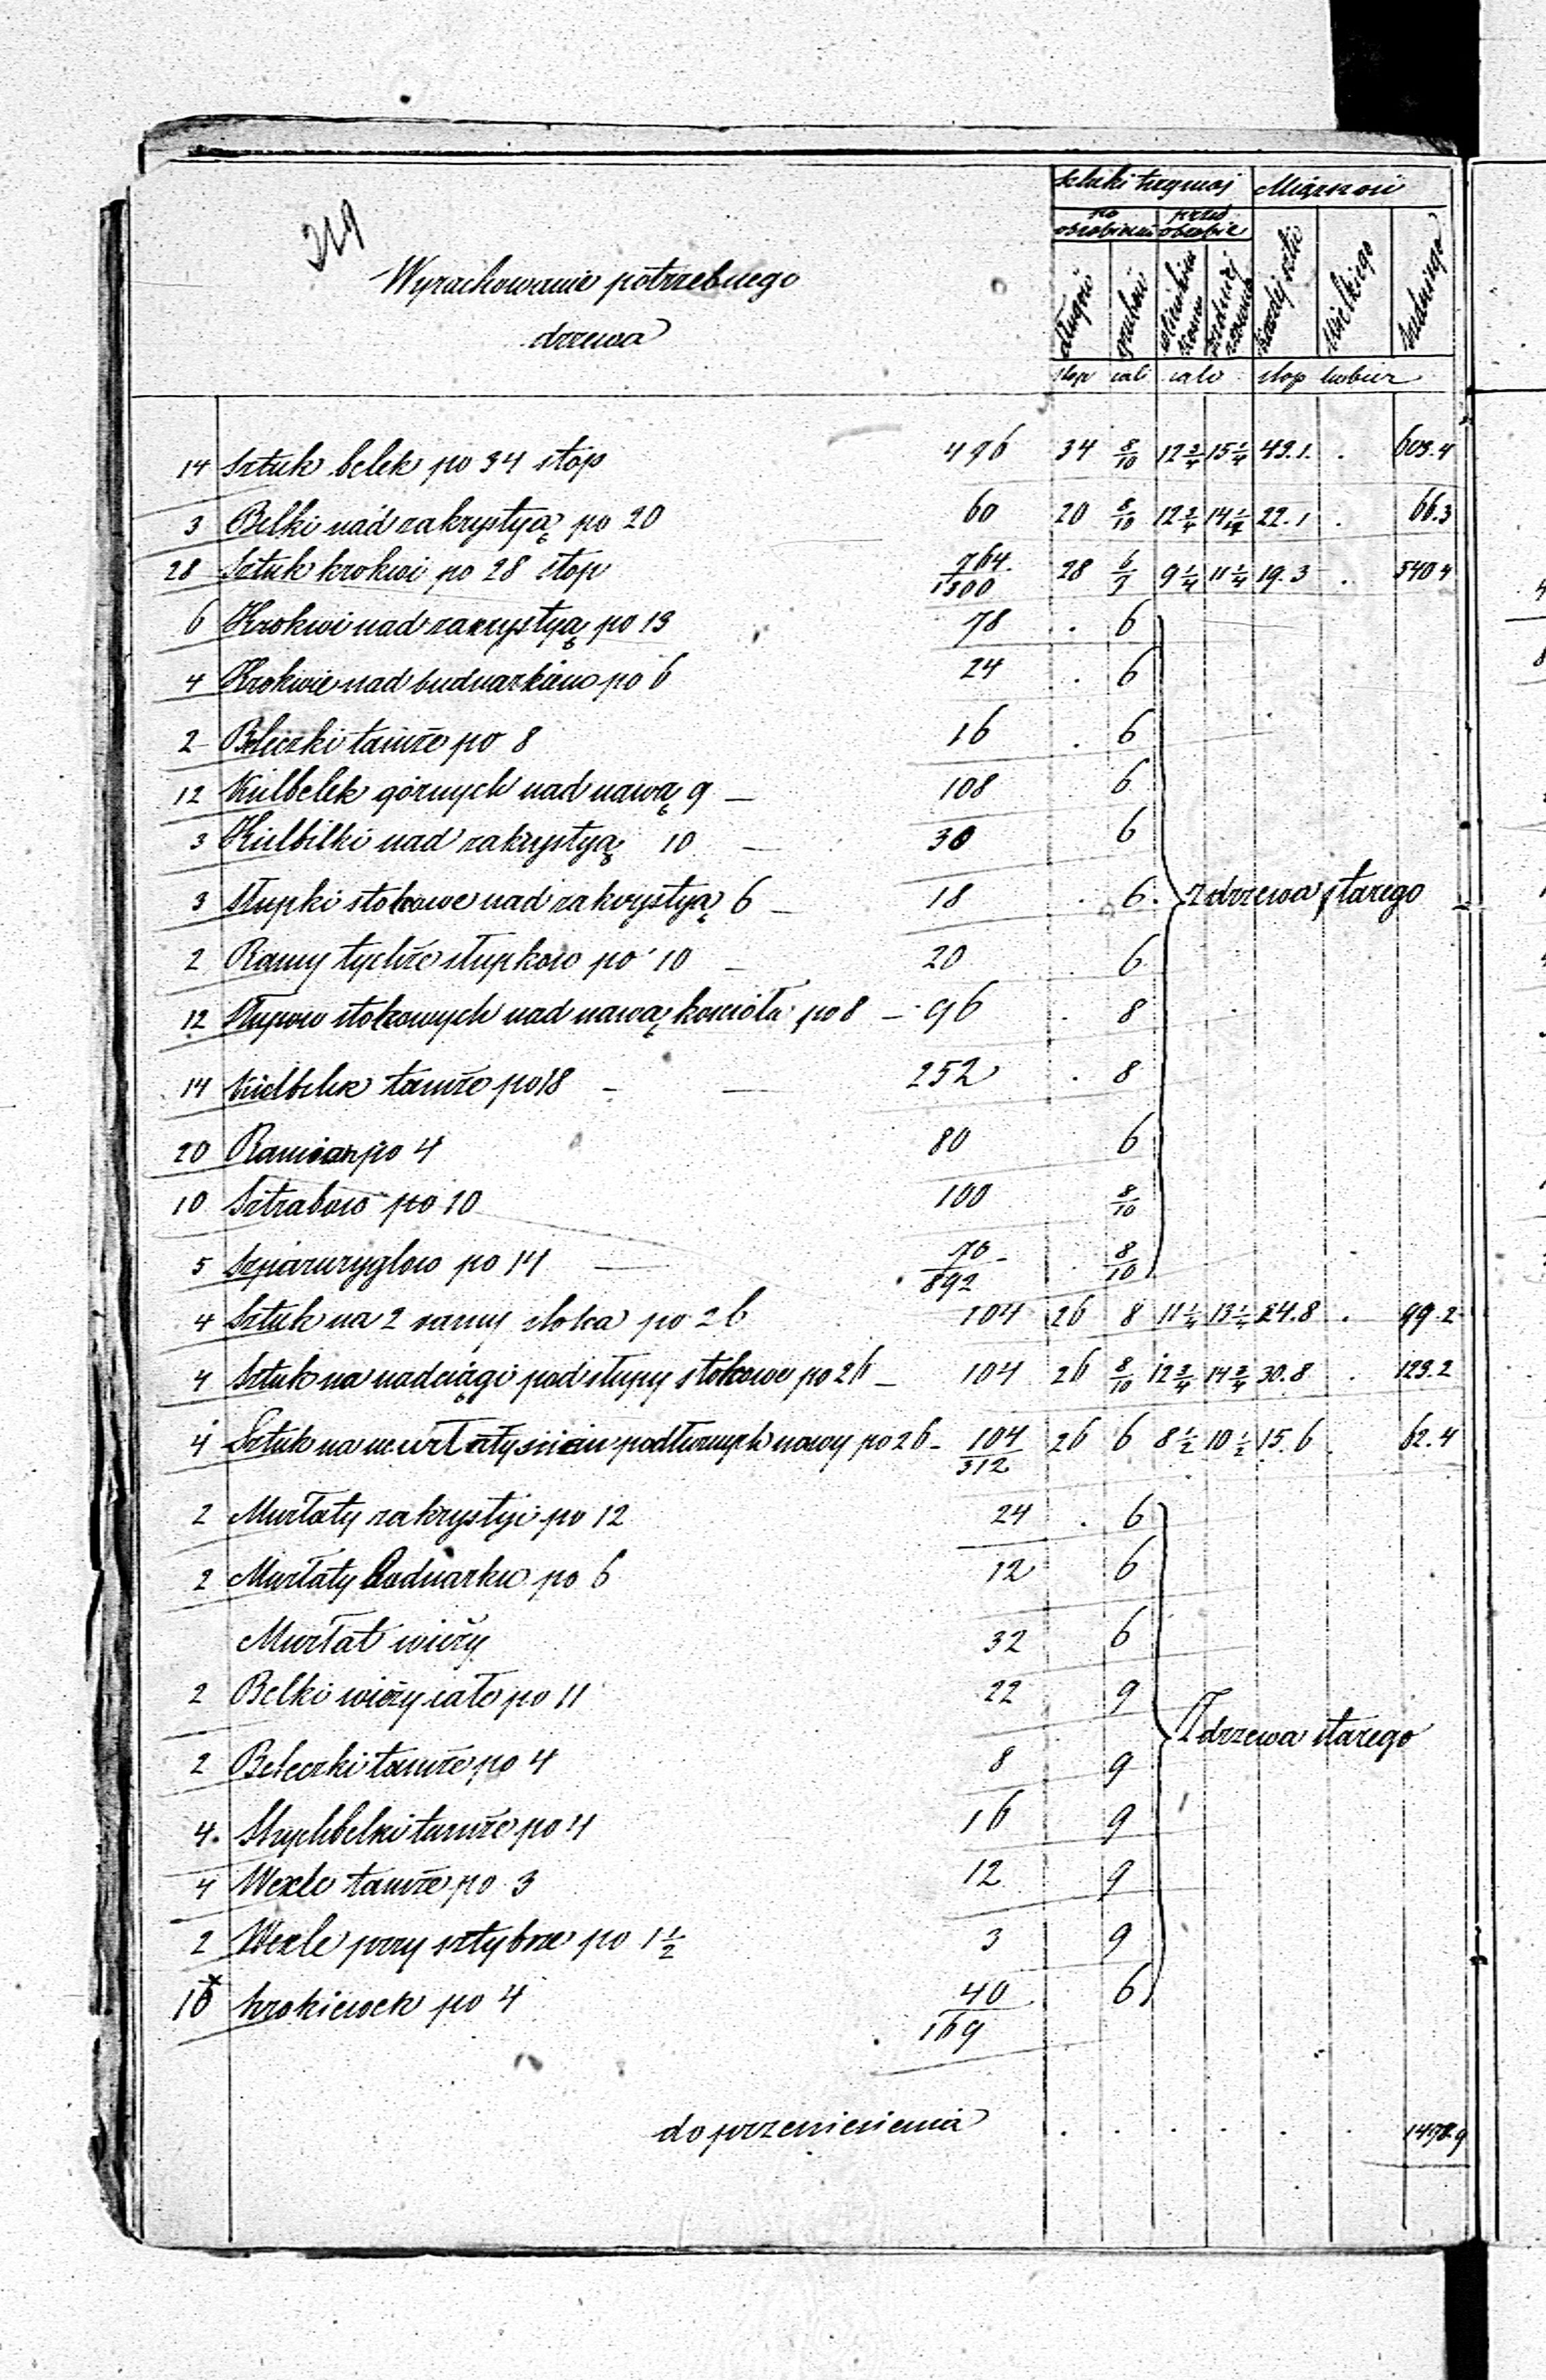 219
Wyrachowanie potrzebnego
drzewa
Sztuki trzymaj Miąższość
po obrobieniu przed obrobie
długość grubość w cieńkim końcu każdej sztu wielkiego średniego
stop cali cali stop kubicz
14 Sztuk belek po 34 stóp 476 34 8/10 12 3/4 15 1/4 43.1. . 603.4
3 Belki nad zakrystyą po 20 60 20 8/10 12 3/4 14 1/4 22.1 . 66.3
28 Sztuk krokwi po 28 stop 764. 28 6/7 9 1/4 11 1/4 19.3 . 540.4
1300
6 Krokwi nad zakrystyą po 13 78 . 6
4 Krokwie nad buduarkiem po 6 24 . 6
2 Beleczki tamże po 8 16 . 6
12 Kielbelek górnych nad nawą 9 — 108 6
3 Kielbelki nad zakrystyą 10 — 30 6
3 Słupki stolcowe nad zakrystyą 6 — 18 . 6. z drzewa starego
2 Ramy tychże słupkow po 10 — 20 . 6
12 Słupow stolcowych nad nawą kościoła po 8 — 96 . 8
14 Kielbelek tamże po 18 - — 252 . 8
20 Ramion po 4 80 6
10 Sztrabow po 10 100 8/10
5 Szparuryglow po 14 — 70 . 8/10
892
4 Sztuk na 2 ramy stolca po 26 104 26 8 11 1/4 13 1/4 24.8 . 99.2
4 Sztuk na nadciągi pod słupy stolcowe po 26 — 104 26 8/10 12 3/4 14 3/4 30.8 . 123.2
4 Sztuk na murłaty ścian podłużnych nawy po 26 - 104 26 6 8 1/2 10 1/2 15.6 . 62.4
312
2 Murłaty zakrystyi po 12 24 . 6
2 Murłaty buduarku po 6 12 6
Murłat wieży 32 6
2 Belki wieży całe po 11 22 9
Z drzewa starego
2 Beleczki tamże po 4 8 9
4. Sztychbelki tamże po 4 16 9
4 Wexle tamże po 3 12 9
2 Wexle przy sztybrze po 1 1/2 3 9
10 krokiewek po 4 40 6
169
do przeniesienia . . . . . . 1498.9